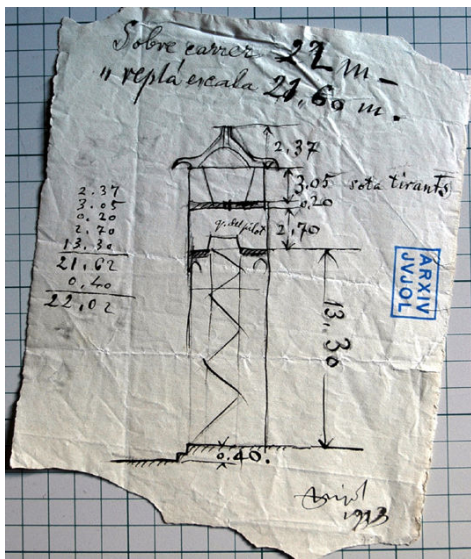 Sobre carrer 22 m -
" replá escala 21,60 m.
2.37
3.05 sota tirants
0.20
2.70
g. del pilot
13.30
0.40.
2.37
3.05
0.20
2.70
13.30
21.62
0.40
22,02
ARXIV
JVJOL
Jujol
1923